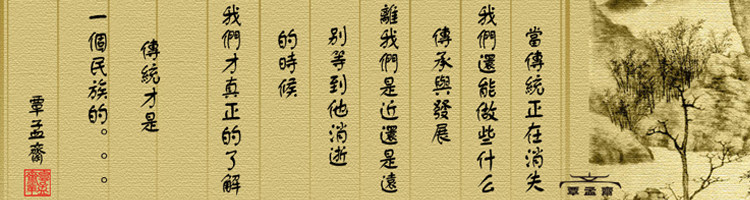 當傳統正在消失
我們還能做些什么
傳承與發展
離我們是近還是遠
別等到他消逝
的時候
我們才真正的了解
傳統才是
一個民族的。。。
覃孟齋
覃孟齋